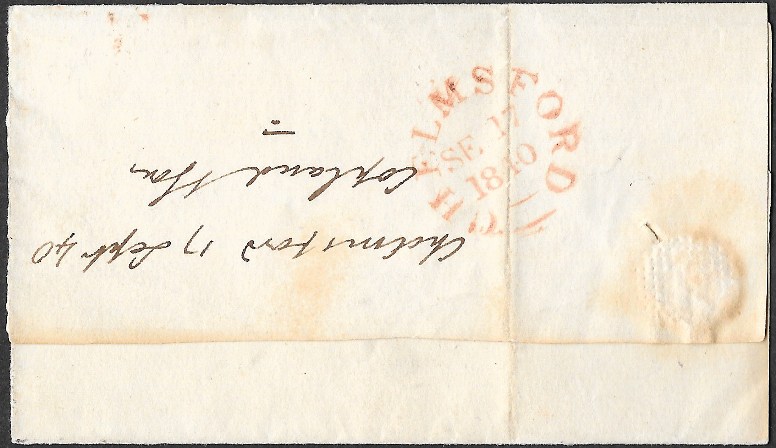 CHELMSFORD
SE 17
1840
Chelmsford 17 Sept 40
Copland &